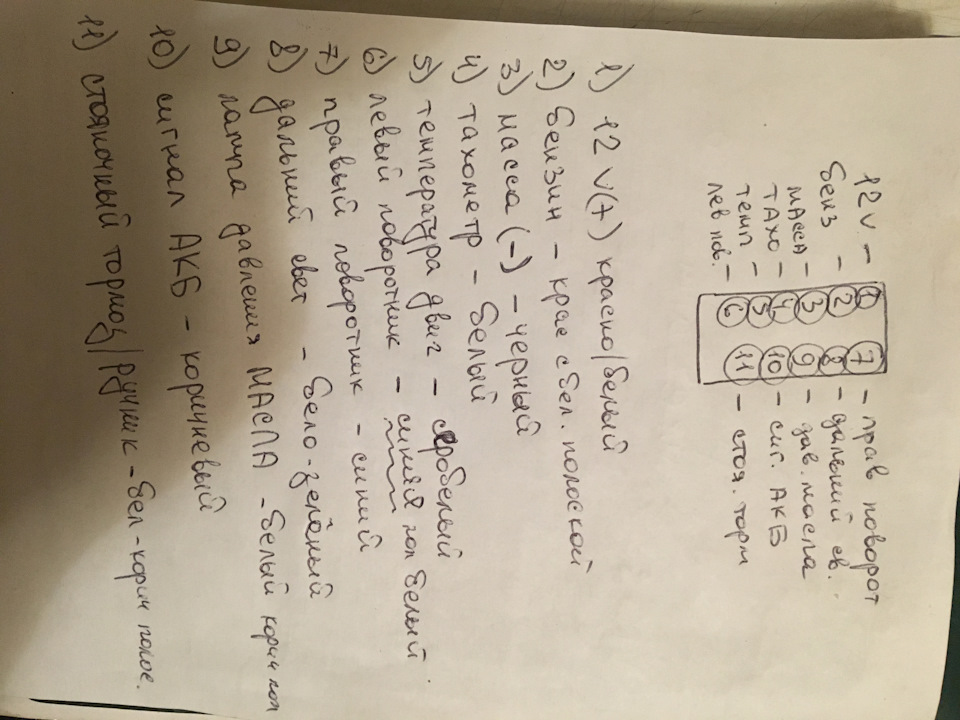 12v. – 1 7 – прав поворот
бенз – 2 8 – дальний св.
МАССА – 3 9 – дав. масла
ТАХО – 4 10 – сиг. АКБ
темп – 5 11 – стоя. торм
лев пов. – 6
1) 12 v(+) красно/белый
2) бензин – крас с бел. полоской
3) масса (–) – черный
4) тахометр – белый
5) температура двиг – серобелый
6) левый поворотник – синяя пол белый
7) правый поворотник – синий
8) дальний свет – бело-зелёный
9) лампа давления МАСЛА – белый корич пол
10) сигнал АКБ – коричневый
11) стояночный тормоз/ручник – бел-корич полос.